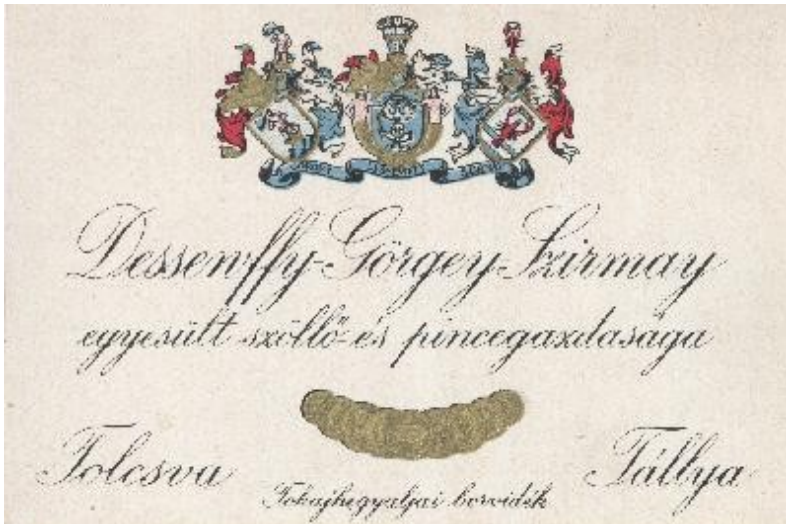 Dessewffy-Görgey-Szirmay
egyesült szöllő- és pincegazdasága
Tolcsva
Tállya
Tokajhegyaljai borvidék